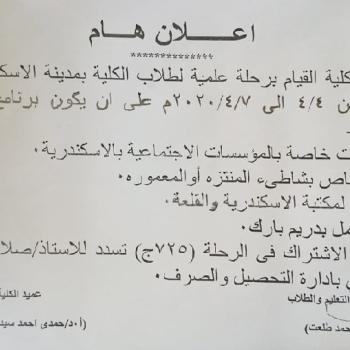 اعلان هام
**************
كلية القيام برحلة علمية لطلاب الكلية بمدينة الاسك
ن ٤/٤ الى ٢٠٢٠/٤/٧م على ان يكون برنامج
ت خاصة بالمؤسسات الاجتماعية بالاسكندرية.
اص بشاطىء المنتزه أوالمعموره.
لمكتبة الاسكندرية والقلعة.
مل بدريم بارك.
الاشتراك فى الرحلة (٧٢٥ج) تسدد للاستاذ/صلا
ى بادارة التحصيل والصرف.
التعليم والطلاب
عميد الكلية
حمد طلعت)
(أ.د/حمدى احمد سيد